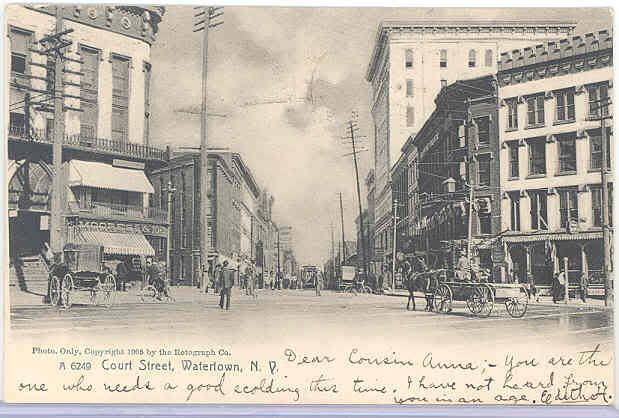 Photo. Only, Copyright 1905 by the Rotograph Co.
A 6249 Court Street, Watertown, N. Y.
Dear Cousin Anna;- You are the
one who needs a good scolding this time. I have not heard from
you in an age.